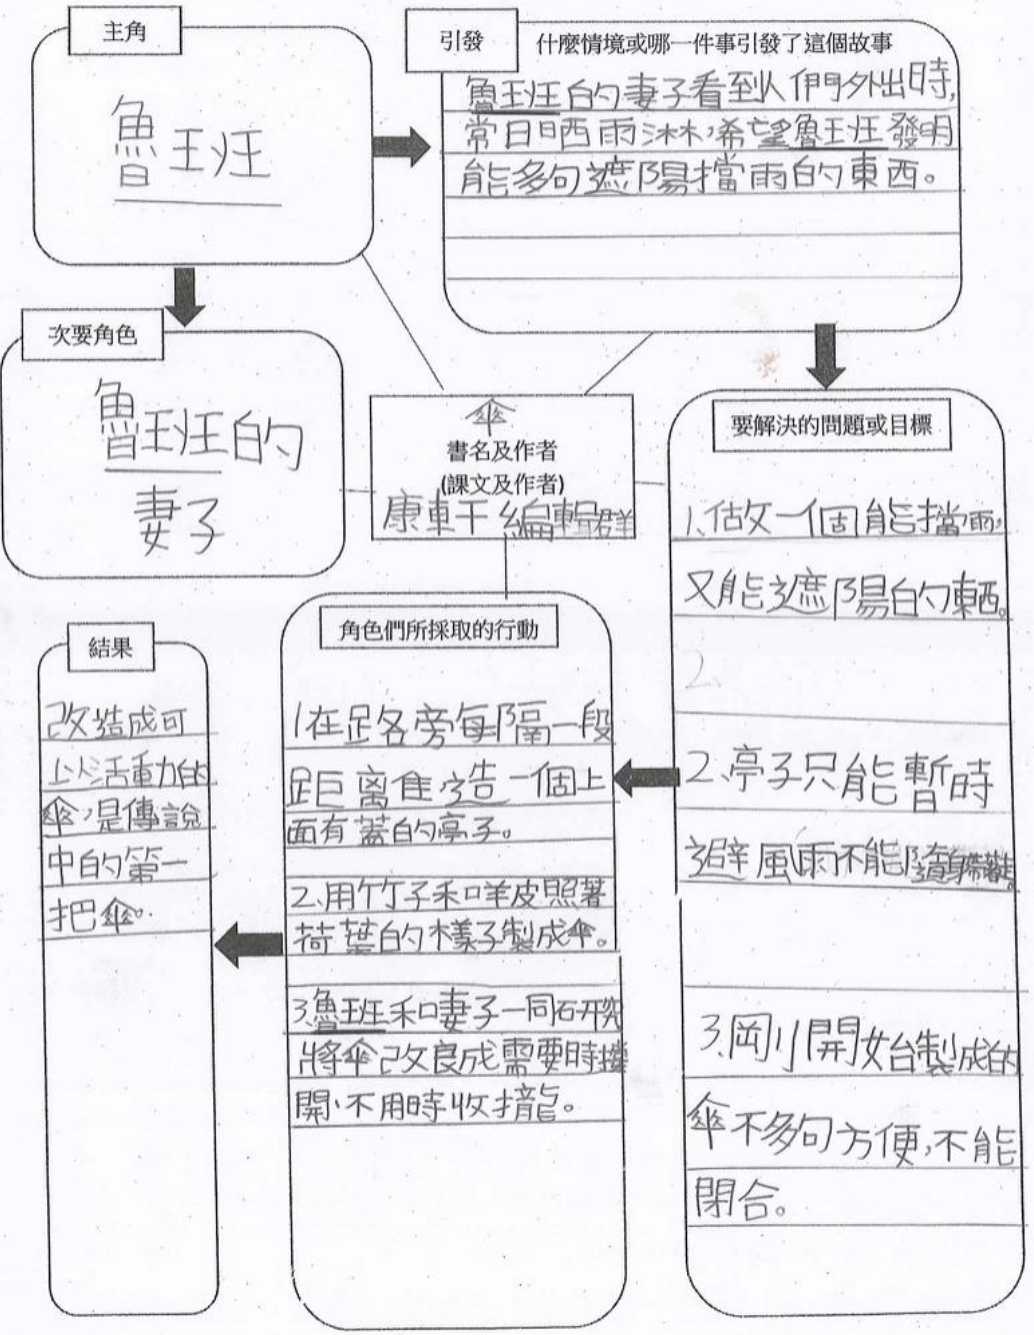 主角
魯班
引發
什麼情境或哪一件事引發了這個故事
魯班的妻子看到人們外出時,
常日晒雨淋,希望魯班發明
能夠遮陽擋雨的東西。
次要角色
魯班的
妻子
傘
書名及作者
(課文及作者)
康軒編輯群
要解決的問題或目標
1.做一個能擋雨,
又能遮陽的東西。
2.
2、亭子只能暫時
避風雨不能隨身帶著走。
3.剛開始製成的
傘不夠方便,不能
閉合。
角色們所採取的行動
1在路旁每隔一段
距離建造一個上
面有蓋的亭子。
2.用竹子和羊皮照著
荷葉的樣子製成傘。
3.魯班和妻子一同研究
將傘改良成需要時撐
開、不用時收攏。
結果
改造成可
以活動的
傘,是傳說
中的第一
把傘。